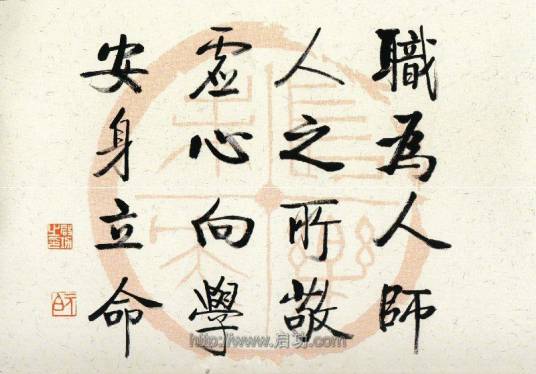 職為人師
人之所敬
虛心向學
安身立命
http://www.启功.com